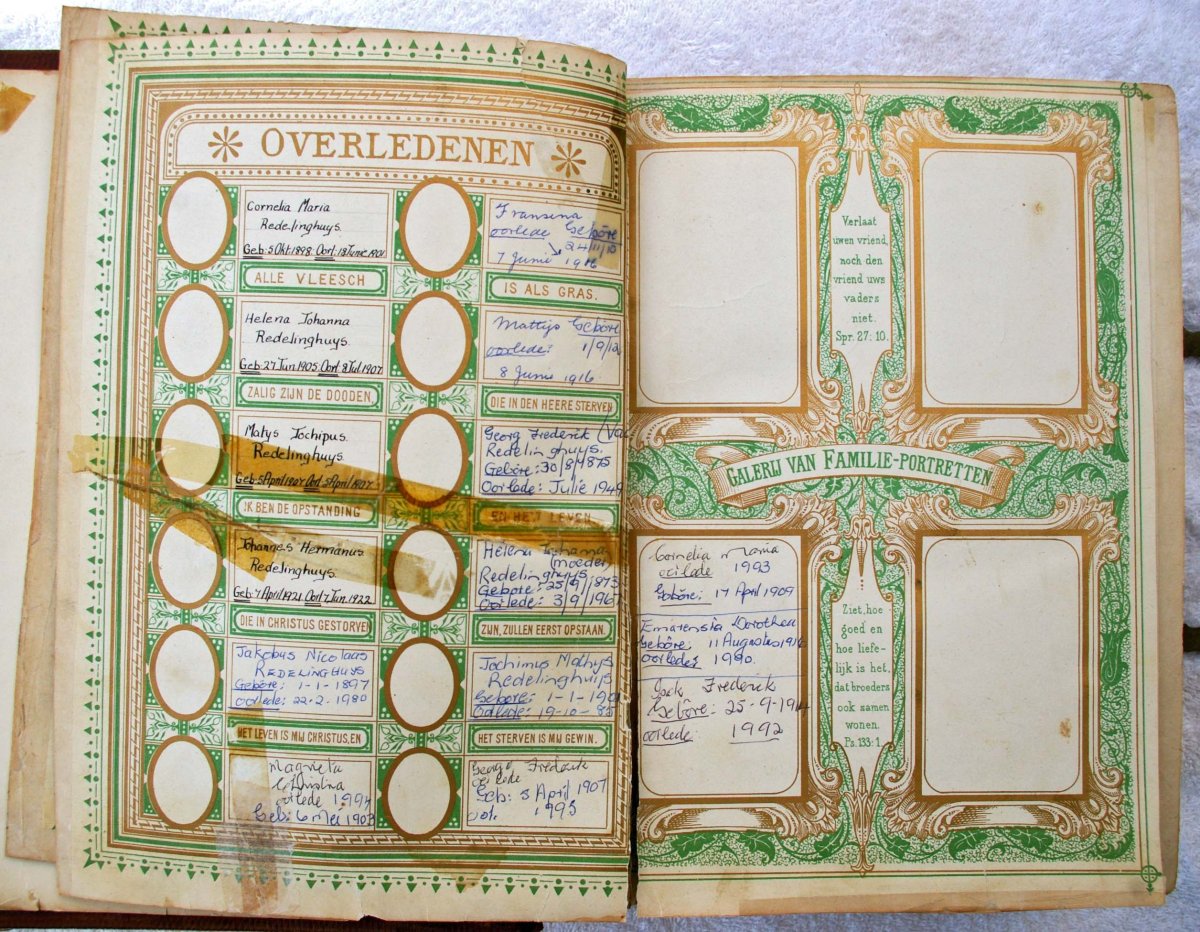 OVERLEDENEN
Cornelia Maria
Redelinghuys.
Geb: 5 Okt 1898 Oorl: 18 Junie 1901
ALLE VLEESCH
Helena Johanna
Redelinghuys.
Geb: 27 Jun 1905 Oorl: 8 Jul 1907
ZALIG ZIJN DE DOODEN,
Matys Jochipus.
Redelinghuys.
Geb: 5 April 1907 Oorl:
IK BEN DE OPSTANDING
Johannes Hermanus
Redelinghuys.
Geb: 7 April 1921 Oorl: 7 Jun. 1922
DIE IN CHRISTUS GESTORVEN
Jakobus Nicolaas
REDELINGHUYS
Gebôre: 1-1-1897
oorlede: 22-2-1980
HET LEVEN IS MIJ CHRISTUS, EN
Magrieta
Christina
oorlede 1994
Geb: 6 Mei 1903
Fransina
oorlede Gebôre
24/11/10
7 Junie 1916
IS ALS GRAS.
Mattys Gebôre
oorlede: 1/9/12
8 Junie 1916
DIE IN DEN HEERE STERVEN
Georg Frederik
Redelinghuys.
Gebôre: 30/8/1875
Oorlede: Julie 1949
EN HET LEVEN
Helena Johanna
(moeder)
Redelinghuys
Gebore: 25/9/1873
Oorlede: 3/9/1967
ZIJN, ZULLEN EERST OPSTAAN.
Jochimus Mathys
Redelinghuijs
Gebôre: 1-1-1901
Oorlede: 19-10-85
HET STERVEN IS MIJ GEWIN.
George Frederik
oorlede
Geb: 3 April 1907
oorl. 1995
Verlaat
uwen vriend,
noch den
vriend uws
vaders
niet.
Spr. 27:10.
GALERIJ VAN FAMILIE-PORTRETTEN
Cornelia Maria
oorlede 1993
Gebôre: 17 April 1909
Emarensia Dorothea
Gebôre: 11 Augustus
oorlede: 1990.
Frederick
Gebôre: 25-9-1914
oorlede: 1992
Ziet, hoe
goed en
hoe liefe-
lijk is het,
dat broeders
ook samen
wonen.
Ps. 133:1.